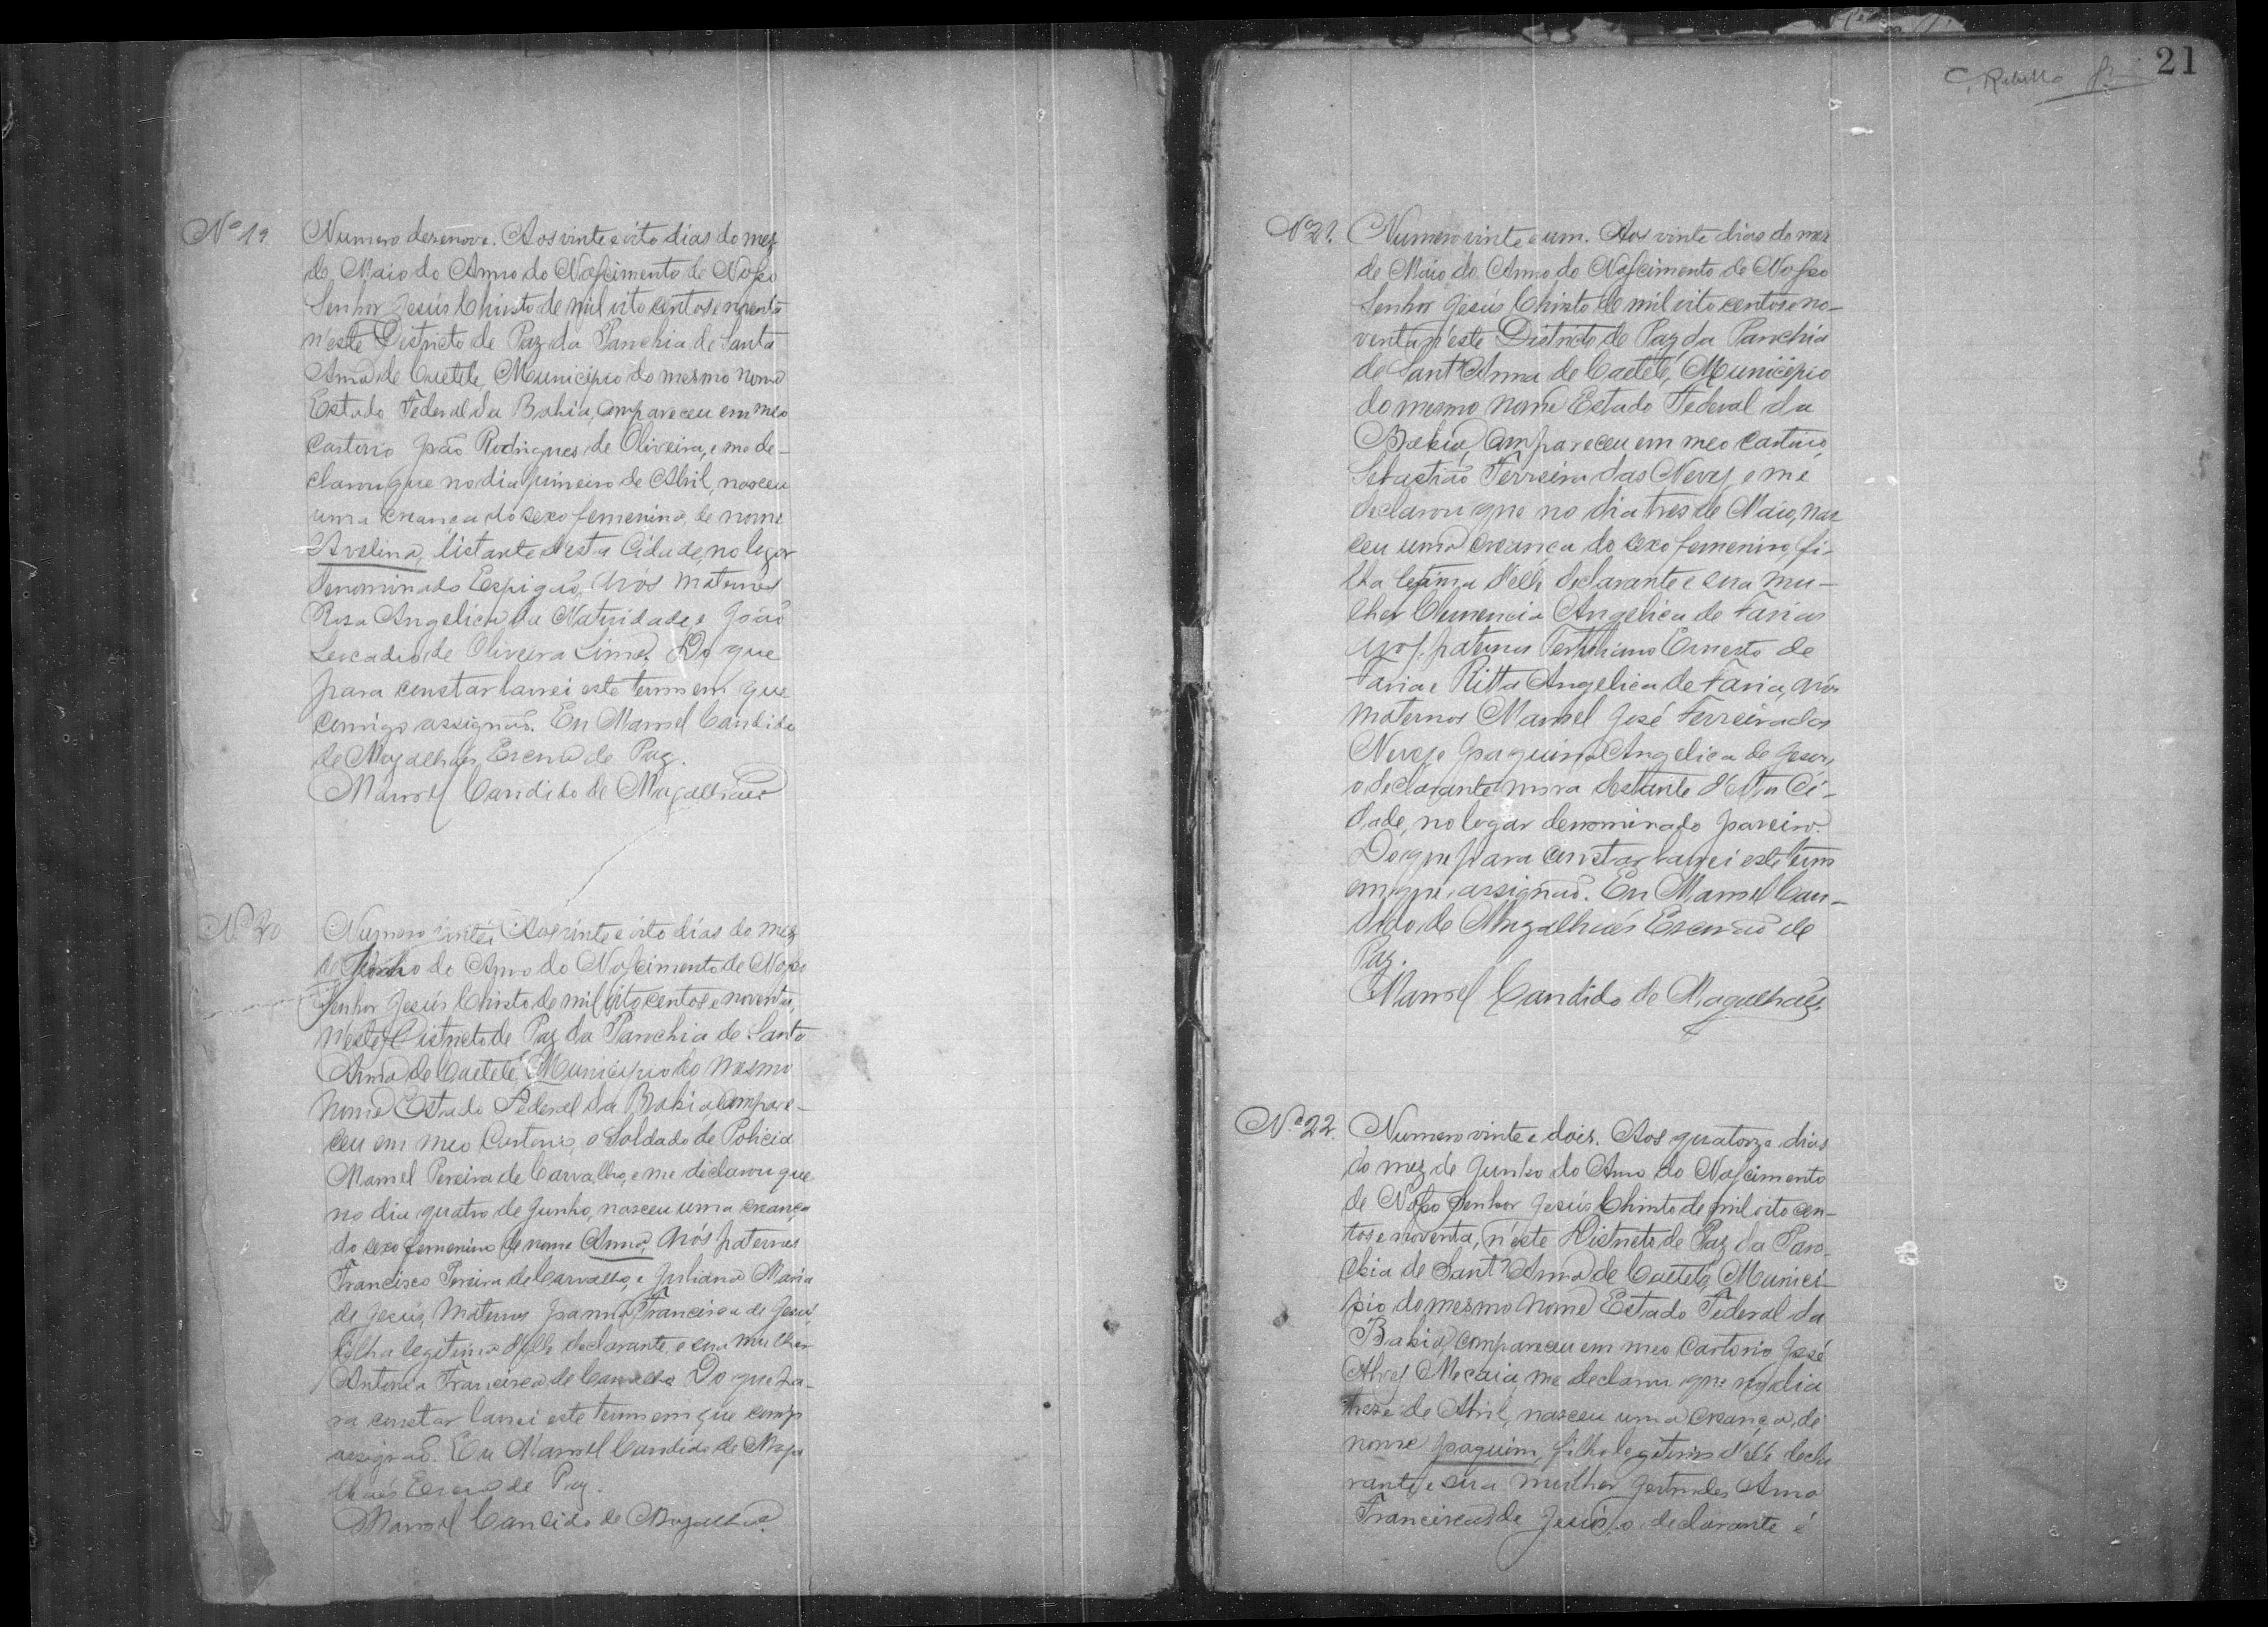 Nº 19
Numero desenove. Aos vinte e oito dias do mez
de Maio do Anno do Nascimento de Nosso
Senhor Jesús Christo de mil oito centos e noventa
n'este Districto de Paz da Parochia de Santa
Anna de Caeteté, Municipio do mesmo nome
Estado Federal da Bahia, compareceu em meo
Cartorio João Rodrigues de Oliveira, e me de-
clarou que no dia primeiro de Abril, nasceu
uma creança do sexo femenino, de nome
Avelina, distante d'esta Cidade, no logar
denominado Espigão, Avós maternos
Rosa Angelica da Natividade, e João
Leocadio de Oliveira Lima. Do que
para constar lavrei este termo em que
comigo assignão. Eu Manoel Candido
de Magalhães, Escrivão de Paz.
Manoel Candido de Magalhães
Nº 20
Numero vinte. Aos vinte e oito dias do mez
de Junho do Anno do Nascimento de Nosso
Senhor Jesús Christo de mil oito centos e noventa,
n'este Districto de Paz da Parochia de Santa
Anna de Caeteté, Municipio do mesmo
nome Estado Federal da Bahia compare-
ceu em meo Cartorio, o Soldado de Policia
Manoel Pereira de Carvalho, e me declarou que
no dia quatro de Junho, nasceu uma creança
do sexo femenino de nome Anna, Avós paternos
Francisco Pereira de Carvalho, e Juliana Maria
de Jesús, maternos Joanna Francisca de Jesús,
filha legitima d'elle declarante, e sua mulher
Antonia Francisca de Carvalho. Do que pa-
ra constar lavrei este termo em que comigo
assignão. Eu Manoel Candido de Maga
lhães Escrivão de Paz.
Manoel Candido de Magalhães
C. Rabello
21
Nº 21.
Numero vinte e um. Aos vinte dias do mez
de Maio do Anno do Nascimento de Nosso
Senhor Jesús Christo de mil oito centos e no-
venta n'este Districto de Paz da Parochia
de Sant'Anna de Caeteté, Municipio
do mesmo nome Estado Federal da
Bahia, compareceu em meo cartorio,
Sebastião Ferreira das Neves, e me
declarou que no dia tres de Maio, nas
ceu uma creança do sexo femenino, fi-
lha letima d'elle declarante e sua mu-
lher Clemencia Angelica de Farias
avos paternos Ernesto de
Faria e Ritta Angelica de Faria, avós
maternos Manoel José Ferreira das
Neves, e Joaquina Angelica de Jesus,
o declarante mora distante d'esta Ci-
dade, no logar denominado Joaveiro.
Do que para constar lavrei este termo
em que assignão. Eu Manoel Can-
dido de Magalhães Escrivão de
Paz.
Manoel Candido de Magalhães.
Nº 22.
Numero vinte e dois. Aos quatorze dias
do mez de Junho do Anno do Nascimento
de Nosso Senhor Jesús Christo de mil oito cen-
tos e noventa, n'este Districto de Paz da Paro-
chia de Sant'Anna de Caeteté, Munici-
pio do mesmo nome Estado Federal da
Bahia, compareceu em meo Cartorio José
Alves Mecaia, me declarou que no dia
treze de Abril, nasceu uma creança, de
nome Joaquim, filho legitimo d'elle decla
rante, e sua mulher Gertrudes Anna
Francisca de Jesús, o declarante é